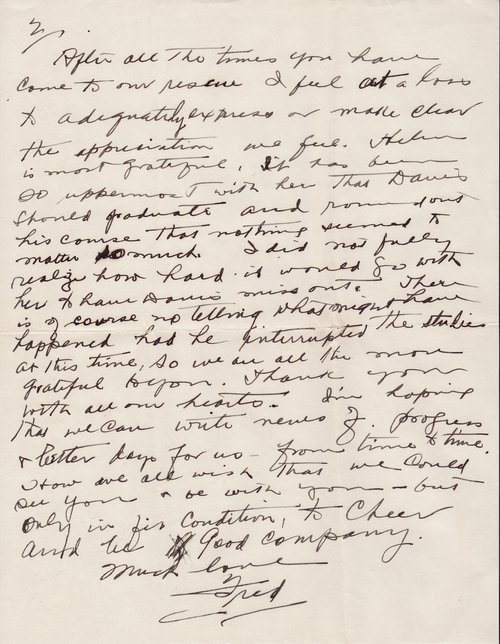 2/.
After all the times you have
come to our rescue I feel at a loss
to adequately express or make clear
the appreciation we feel. Helen
is most grateful. It has been
so uppermost with her that Davis
should graduate and round out
his course that nothing seemed to
matter so much. I did not fully
realize how hard it would go with
her to have Davis miss out. There
is of course no telling what might have
happened had he interrupted the studies
at this time, so we are all the more
grateful to you. Thank you
with all our hearts. I'm hoping
that we can write news of progress
& better days for us - from time to time.
How we all wish that we could
see you & be with you - but
only in fit condition, to cheer
and be good company.
Much love
Fred